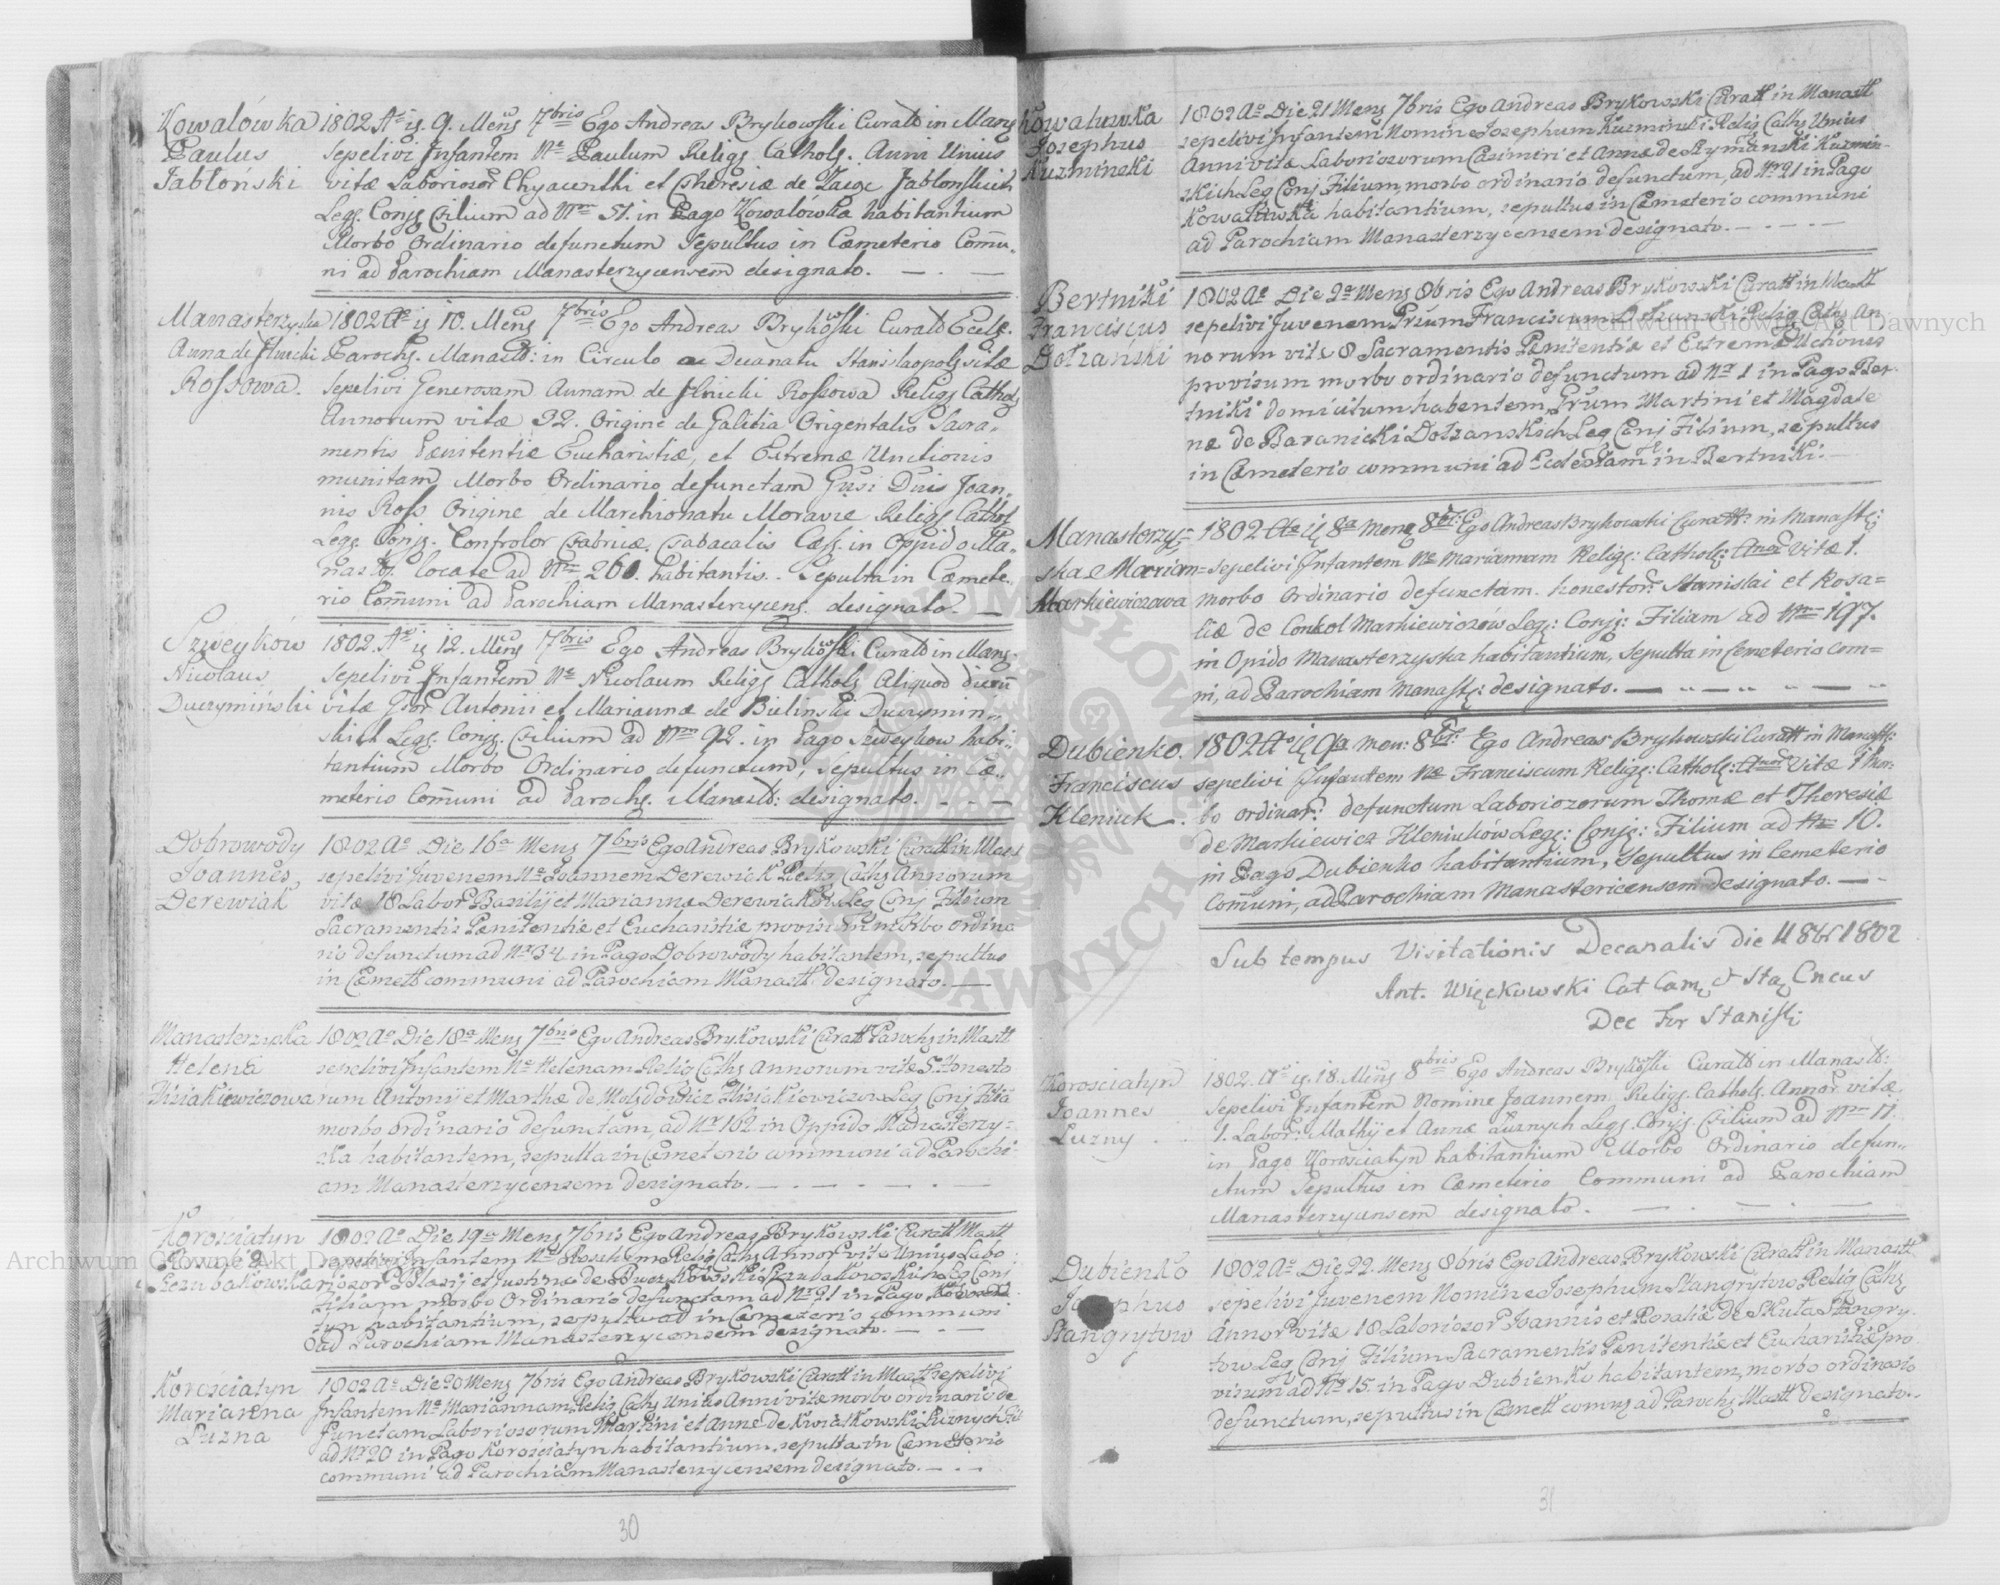 Kowalówka
Paulus
Jabłoński
1802 Ao ij 9. Menş 7bris Ego Andreas Brykowski Curato in Manş
sepelivi Infantem Ne Paulum Religş Catholş. Anni Unius
vitæ Laboriosor Chyacinthi et Theresiæ de Zaige Jabłonskich
Legş. Conjş Filium ad Nrm 51. in Pago Kowalówka habitantium
Morbo Ordinario defunctum Sepultus in Cæmeterio Comu-
ni ad Parochiam Manasterzycensem designato. — . —
Manasterzyska
Anna de Ilnicki
Rossowa.
1802 Ao ij 10. Menş 7bris Ego Andreas Brykowski Curato Eccls.
Parochş. Manastb: in Circulo ac Decanatu Stanislaopolş vitæ
sepelivi Generosam Annam de Ilnicki Rossowa Religş Catholş
Annorum vitæ 32. Origine de Galitia Origentalis Sacra-
mentis Pœnitentiæ Eucharistiæ, et Extremæ Unctionis
munitam Morbo Ordinario defunctam Gnsi Dnis Joan-
nis Ross Origine de Marchionatu Moraviæ Religş Cathol
Legş. Conjş. Controlor Fabricæ Tabacalis Cæsş. in Oppido Ma-
nastş. locatæ ad Nrm 260. habitantis. Sepulta in Cæmete-
rio Comuni ad Parochiam Manasterzycens. designato. —
Szweyków
Nicolaus
Duczymiński
1802. Ao ij 12. Menş 7bris Ego Andreas Brykowski Curato in Manş.
Sepelivi Infantem Ne Nicolaum Religş Catholş Aliquod dierū
vitæ Gsor Antonii et Mariannæ de Bielinski Duczymin-
skich Legş. Conjş. Filium ad Nrm 92. in Pago Szweykow habi-
tantium Morbo Ordinario defunctum, sepultus in Cæ-
meterio Comuni ad Parochş. Manastb: designato. - - -
Dobrowody
Joannes
Derewiak
1802 Ao Die 16a Menş 7bris Ego Andreas Brykowski Curatt in Manş
sepelivi Juvenem Ne Joannem Derewiak Relig Cathş Annorum
vitæ 18 Labor Basilij et Marianna Derewiakow Leg Conj Filium
Sacramentis Pænitentiæ et Eucharistiæ provisum Morbo ordina
rio defunctum ad Nr 34 in Pago Dobrowody habitantem, sepultus
in Cæmett communi ad Paroch Manastt designato. —
Manasterzyska
Helena
1802 Ao Die 18a Menş 7bris Ego Andreas Brykowski Curatt Parochş in Mastt
sepelivi Infantem Ne Helenam Relig Cathş annorum vitæ 5 Honesto
rum Antonij et Marthæ de Leg Conj Filia
morbo ordinario defunctam, ad Nr 162 in Oppido Manasterzy-
ska habitantem, sepulta in Cæmeterio communi ad Parochi-
am Manasterzycensem designato. — . — . —
Korosciatyn
1802 Ao Die 19a Menş 7bris Ego Andreas Brykowski Curatt Mastt
sepelivi Infantem Ne Cathş Annor vitæ Unius Labo
Leg Conj
Filiam morbo Ordinario defunctam ad Nr 21 in Pago Korosci
tyn habitantium, sepulta ad in Cæmeterio communi
ad Parochiam Manasterzycensem designato. — . —
Korosciatyn
Marianna
Luzna
1802 Ao Die 20 Menş 7bris Ego Andreas Brykowski Curatt in Mastt sepelivi
Infantem Ne Mariannam Relig Cathş Unius Anni vitæ morbo ordinario de
functam Laboriosorum Martini et Annæ de Kwiatkowski Luznych Fil
ad Nr 20 in Pago Korosciatyn habitantium sepulta in Cæmeterio
communi ad Parochiam Manasterzycensem designato. — . —
30
Kowaluwka
Josephus
Kuzminski
1802 Ao Die 21 Menş 7bris Ego Andreas Brykowski Curatt in Manastt
sepelivi Infantem Nomine Josephum Kuzminski Relig Cathş Unius
Anni vitæ Laboriozorum Casimiri et Annæ de Szymanski Kuzmin-
skich Leg Conj Filium, morbo ordinario defunctum, ad Nr 21 in Pago
Kowaluwka habitantium, sepultus in Cæmeterio communi
ad Parochiam Manasterzycensem designato. — . —
Bertniki
Franciscus
Dołzanski
1802 Ao Die 2a Menş 8bris Ego Andreas Brykowski Curatt in Manstt
sepelivi Juvenem Franciscum Dołzanski Relig Cathş An
norum vitæ 8 Sacramentis Pænitentiæ et Extremæ Uctiones
provisum morbo ordinario defunctum ad Nr 1 in Pago Ber-
tniki domicilium habentem, Gsrum Martini et Magdale
næ de Baranicki Dołzanskich Leg Conj Filium, sepultus
in Cæmeterio communi ad Ecclesiam in Bertniki.
Manasterzy=
skae Mariam=
Markiewiczowa
1802 Ao ij 8a Menş 8br: Ego Andreas Brykowski Curatto in Manastş:
sepelivi Infantem Ne Mariannam Religş: Catholş: Anor vitæ 1.
morbo Ordinario defunctam. honestor. Stanislai et Rosa=
liæ de Conkol Markiewiczów Legş: Conjş: Filiam ad Nrm 197.
in Opido Manasterzyska habitantium, Sepulta in Cemeterio com=
ni, ad Parochiam Manastş: designato. — „ — „ — „
Dubienko.
Franciscus
Kleniuk.
1802 Ao ij 9a Men: 8br: Ego Andreas Brykowski Curatt in Manastt:
sepelivi Infantem Ne Franciscum Religş: Catholş: Anor Vitæ 1 Mor-
bo ordinar: defunctum Laboriozorum Thomæ et Theresiæ
de Markiewicz Kleniuków Legş: Conjş: Filium ad Nrm 10.
in Pago Dubienko habitantium, Sepultus in Cemeterio
Comūni, ad Parochiam Manastericensem designato. —
Sub tempus Visitationis Decanalis die 11 8br 1802
Ant. Więckowski Cat Camş & Staş Cncus
Dec For Stanisli
Korosciatyn
Joannes
Luzny
1802. Ao ij. 18. Menş 8bris Ego Andreas Brykowski Curato in Manastb:
sepelivi Infantem Nomine Joannem Religş. Catholş. Annor vitæ
1. Labor: Mathij et Annæ Luznych Legş. Conjş. Filium ad Nrm 11.
in Pago Korosciatyn habitantium Morbo Ordinario defun-
ctum Sepultus in Cæmeterio Communi ad Parochiam
Manasterzycensem designato. — . — . —
Dubienko
Stangrytow
1802 Ao Die 22. Menş 8bris Ego Andreas Brykowski Curatt in Manastt
sepelivi Juvenem Nomine Josephum Stangrytow Relig Cathş
Annor vitæ 18 Laboriozor Joannis et Rosaliæ de Skuta Stangry-
tow Leg Conj Filium Sacramentis Pænitentiæ et Eucharistiæ pro
visum ad Nr 15. in Pago Dubienko habitantem, morbo ordinario
defunctum, sepultus in Cæmett comuş ad Parochş Mastt designato.
31
Archiwum Główne Akt Dawnych
Archiwum Główne Akt Dawnych